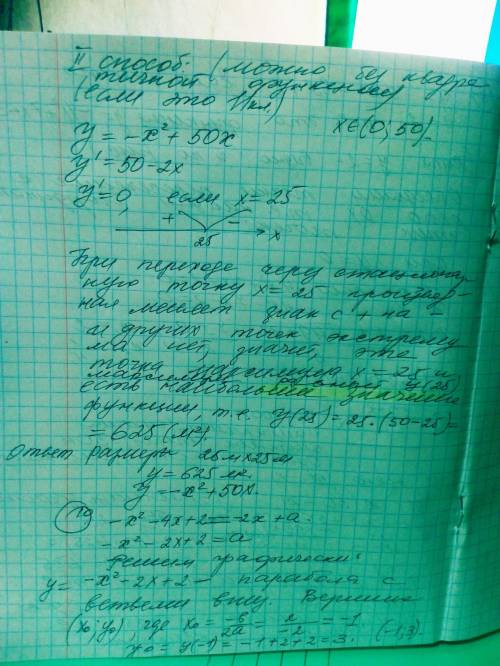 II способ. (можно без квадра-
тичной функции
(если это 11 кл.)
y = -x² + 50x x∈(0; 50)
y' = 50 - 2x
y' = 0, если x = 25
+ -
25 x
При переходе через стационар-
ную точку x = 25 производ-
ная меняет знак с + на -
и других точек экстрему-
ма нет, значит, эта
точка максимума x = 25 и
y(25)
есть наибольшее значение
функции, т.е. y(25) = 25·(50-25) =
= 625 (м²).
Ответ размеры 25м×25м
y = 625 м.
y = -x² + 50x.
-x² - 4x + 2 = -2x + a.
-x² - 2x + 2 = a
Решим графически:
y = -x² - 2x + 2 - парабола с
ветвями вниз. Вершина
(x₀; y₀), где x₀ = -b/2a = 2/-2 = -1
y₀ = y(-1) = -1 + 2 + 2 = 3. (-1; 3).